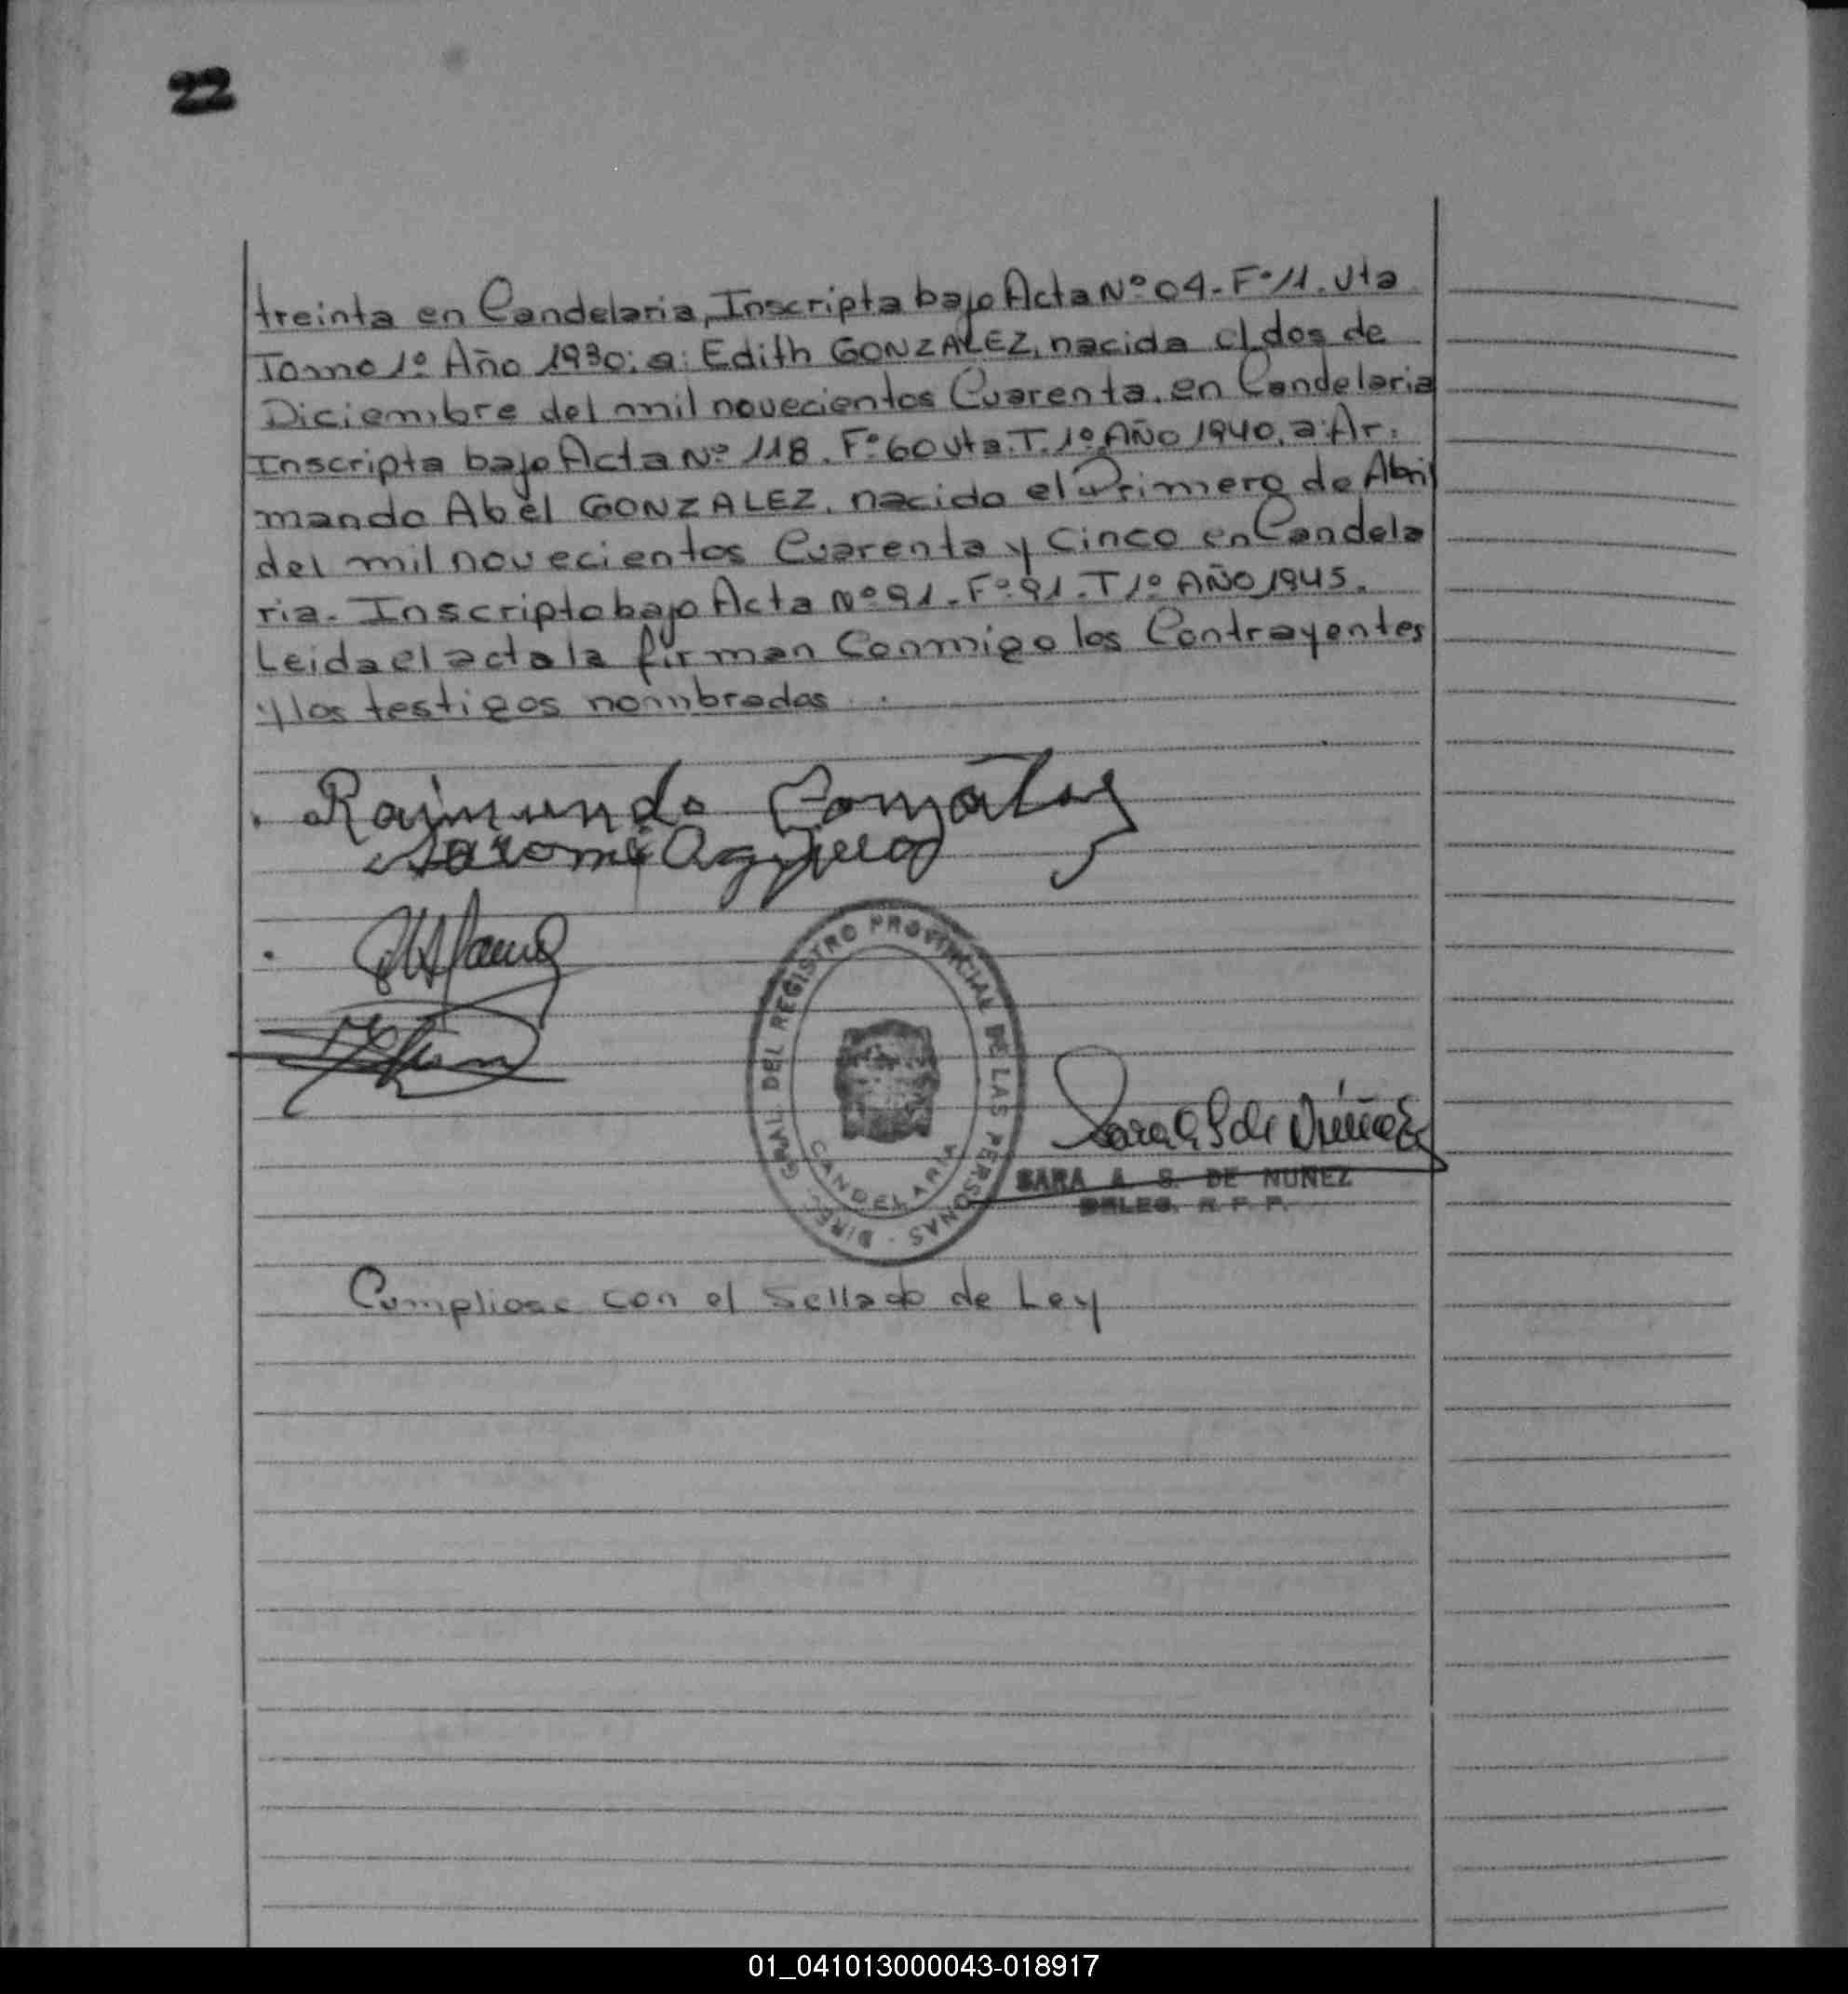 22
treinta en Candelaria, Inscripta bajo Acta Nº 04-Fº11. Vta
Tomo 1º Año 1930; a: Edith GONZALEZ, nacida el dos de
Diciembre del mil novecientos Cuarenta, en Candelaria
Inscripta bajo Acta Nº 118. Fº 60 Vta. T. 1º. AÑO 1940, a: Ar.
mando Abel GONZALEZ, nacido el Primero de Abril
del mil novecientos Cuarenta y Cinco en Candela
ria. Inscripto bajo Acta Nº 91. Fº 91. T 1º AÑO 1945.
Leida el acta la firman Conmigo los Contrayentes
y los testigos nombrados..
Raimundo Gonzalez
DIREC. GRAL. DEL REGISTRO PROVINCIAL DE LAS PERSONAS
CANDELARIA
Sara A S de Nuñez
SARA A. S. DE NUÑEZ
DELEG. R. P. P.
Cumpliose con el Sellado de Ley
01_041013000043-018917